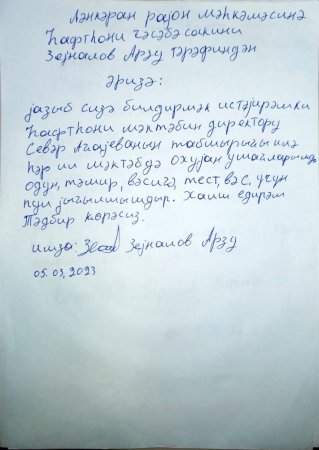 Ләнкәран рајон мәһкәмәсинә
Һафтһони гәсәбә сакини
Зејналов Арзу тәрәфиндән
әризә:
јазыб сизә билдирмәк истәјирәмки
Һафтһони мәктәбин директору
Севәр Ағајеванын табшырығы илә
һәр ил мәктәбдә охујан ушагларындан
одун, тәмир, вәсигә, тест, вә с. үчүн
пул јығылмышдыр. Хаиш едирәм
Тәдбир көрәсиз.
имза: Зејналов Арзу
05.03.2023